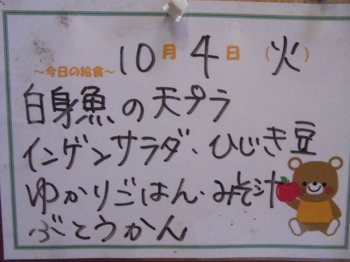 10月4日(火)
～今日の給食～
白身魚の天プラ
インゲンサラダ・ひじき豆
ゆかりごはん・みそ汁
ぶとうかん